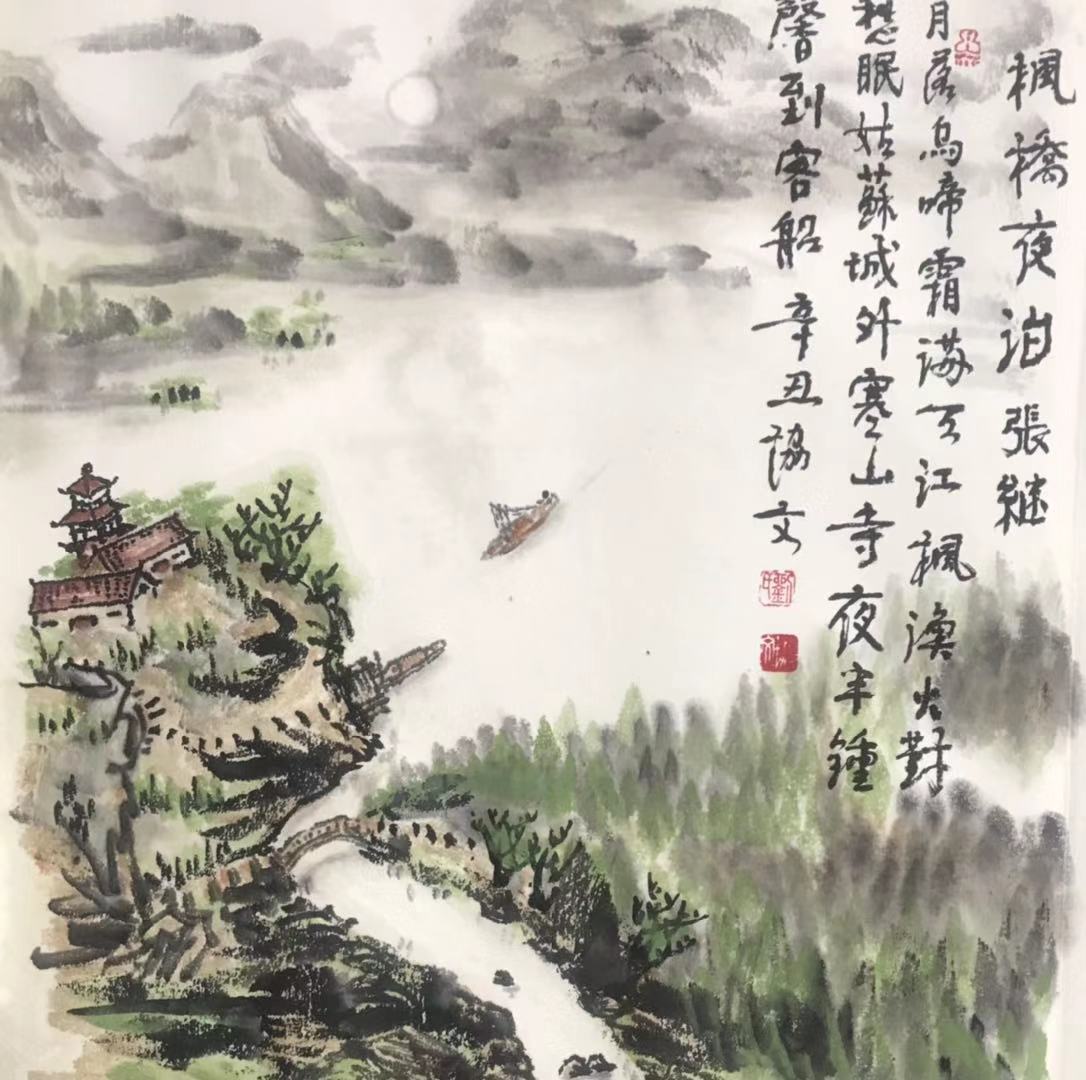 楓橋夜泊 張継
月落烏啼霜滿天江楓漁火對
愁眠姑蘇城外寒山寺夜半鍾
聲到客船 辛丑協文